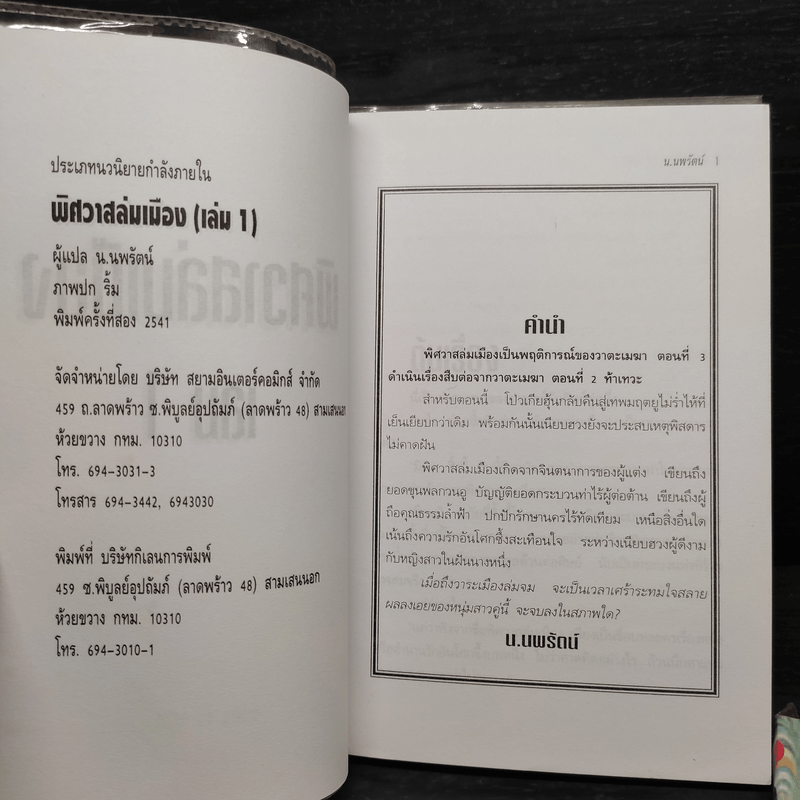 ประเภทนวนิยายกำลังภายใน
พิศวาสล่มเมือง (เล่ม 1)
ผู้แปล น.นพรัตน์
ภาพปก ริ้ม
พิมพ์ครั้งที่สอง 2541
จัดจำหน่ายโดย บริษัท สยามอินเตอร์คอมิกส์ จำกัด
459 ถ.ลาดพร้าว ซ.พิบูลย์อุปถัมภ์ (ลาดพร้าว 48) สามเสนนอก
ห้วยขวาง กทม. 10310
โทร. 694-3031-3
โทรสาร 694-3442, 6943030
พิมพ์ที่ บริษัทกิเลนการพิมพ์
459 ซ.พิบูลย์อุปถัมภ์ (ลาดพร้าว 48) สามเสนนอก
ห้วยขวาง กทม. 10310
โทร. 694-3010-1
น.นพรัตน์ 1
คำนำ
พิศวาสล่มเมืองเป็นพฤติการณ์ของวาตะเมฆา ตอนที่ 3
ดำเนินเรื่องสืบต่อจากวาตะเมฆา ตอนที่ 2 ท้าเทวะ
สำหรับตอนนี้ โปวเกียฮุ้นกลับคืนสู่เทพมฤตยูไม่ร่ำไห้ที่
เย็นเยียบกว่าเดิม พร้อมกันนั้นเนียบฮวงยังจะประสบเหตุพิสดาร
ไม่คาดฝัน
พิศวาสล่มเมืองเกิดจากจินตนาการของผู้แต่ง เขียนถึง
ยอดขุนพลกวนอู บัญญัติยอดกระบวนท่าไร้ผู้ต่อต้าน เขียนถึงผู้
ถือคุณธรรมล้ำฟ้า ปกปักรักษานครไร้ทัดเทียม เหนือสิ่งอื่นใด
เน้นถึงความรักอันโศกซึ้งสะเทือนใจ ระหว่างเนียบฮวงผู้ดีงาม
กับหญิงสาวในฝันนางหนึ่ง
เมื่อถึงวาระเมืองล่มจม จะเป็นเวลาเศร้าระทมใจสลาย
ผลลงเอยของหนุ่มสาวคู่นี้ จะจบลงในสภาพใด?
น.นพรัตน์